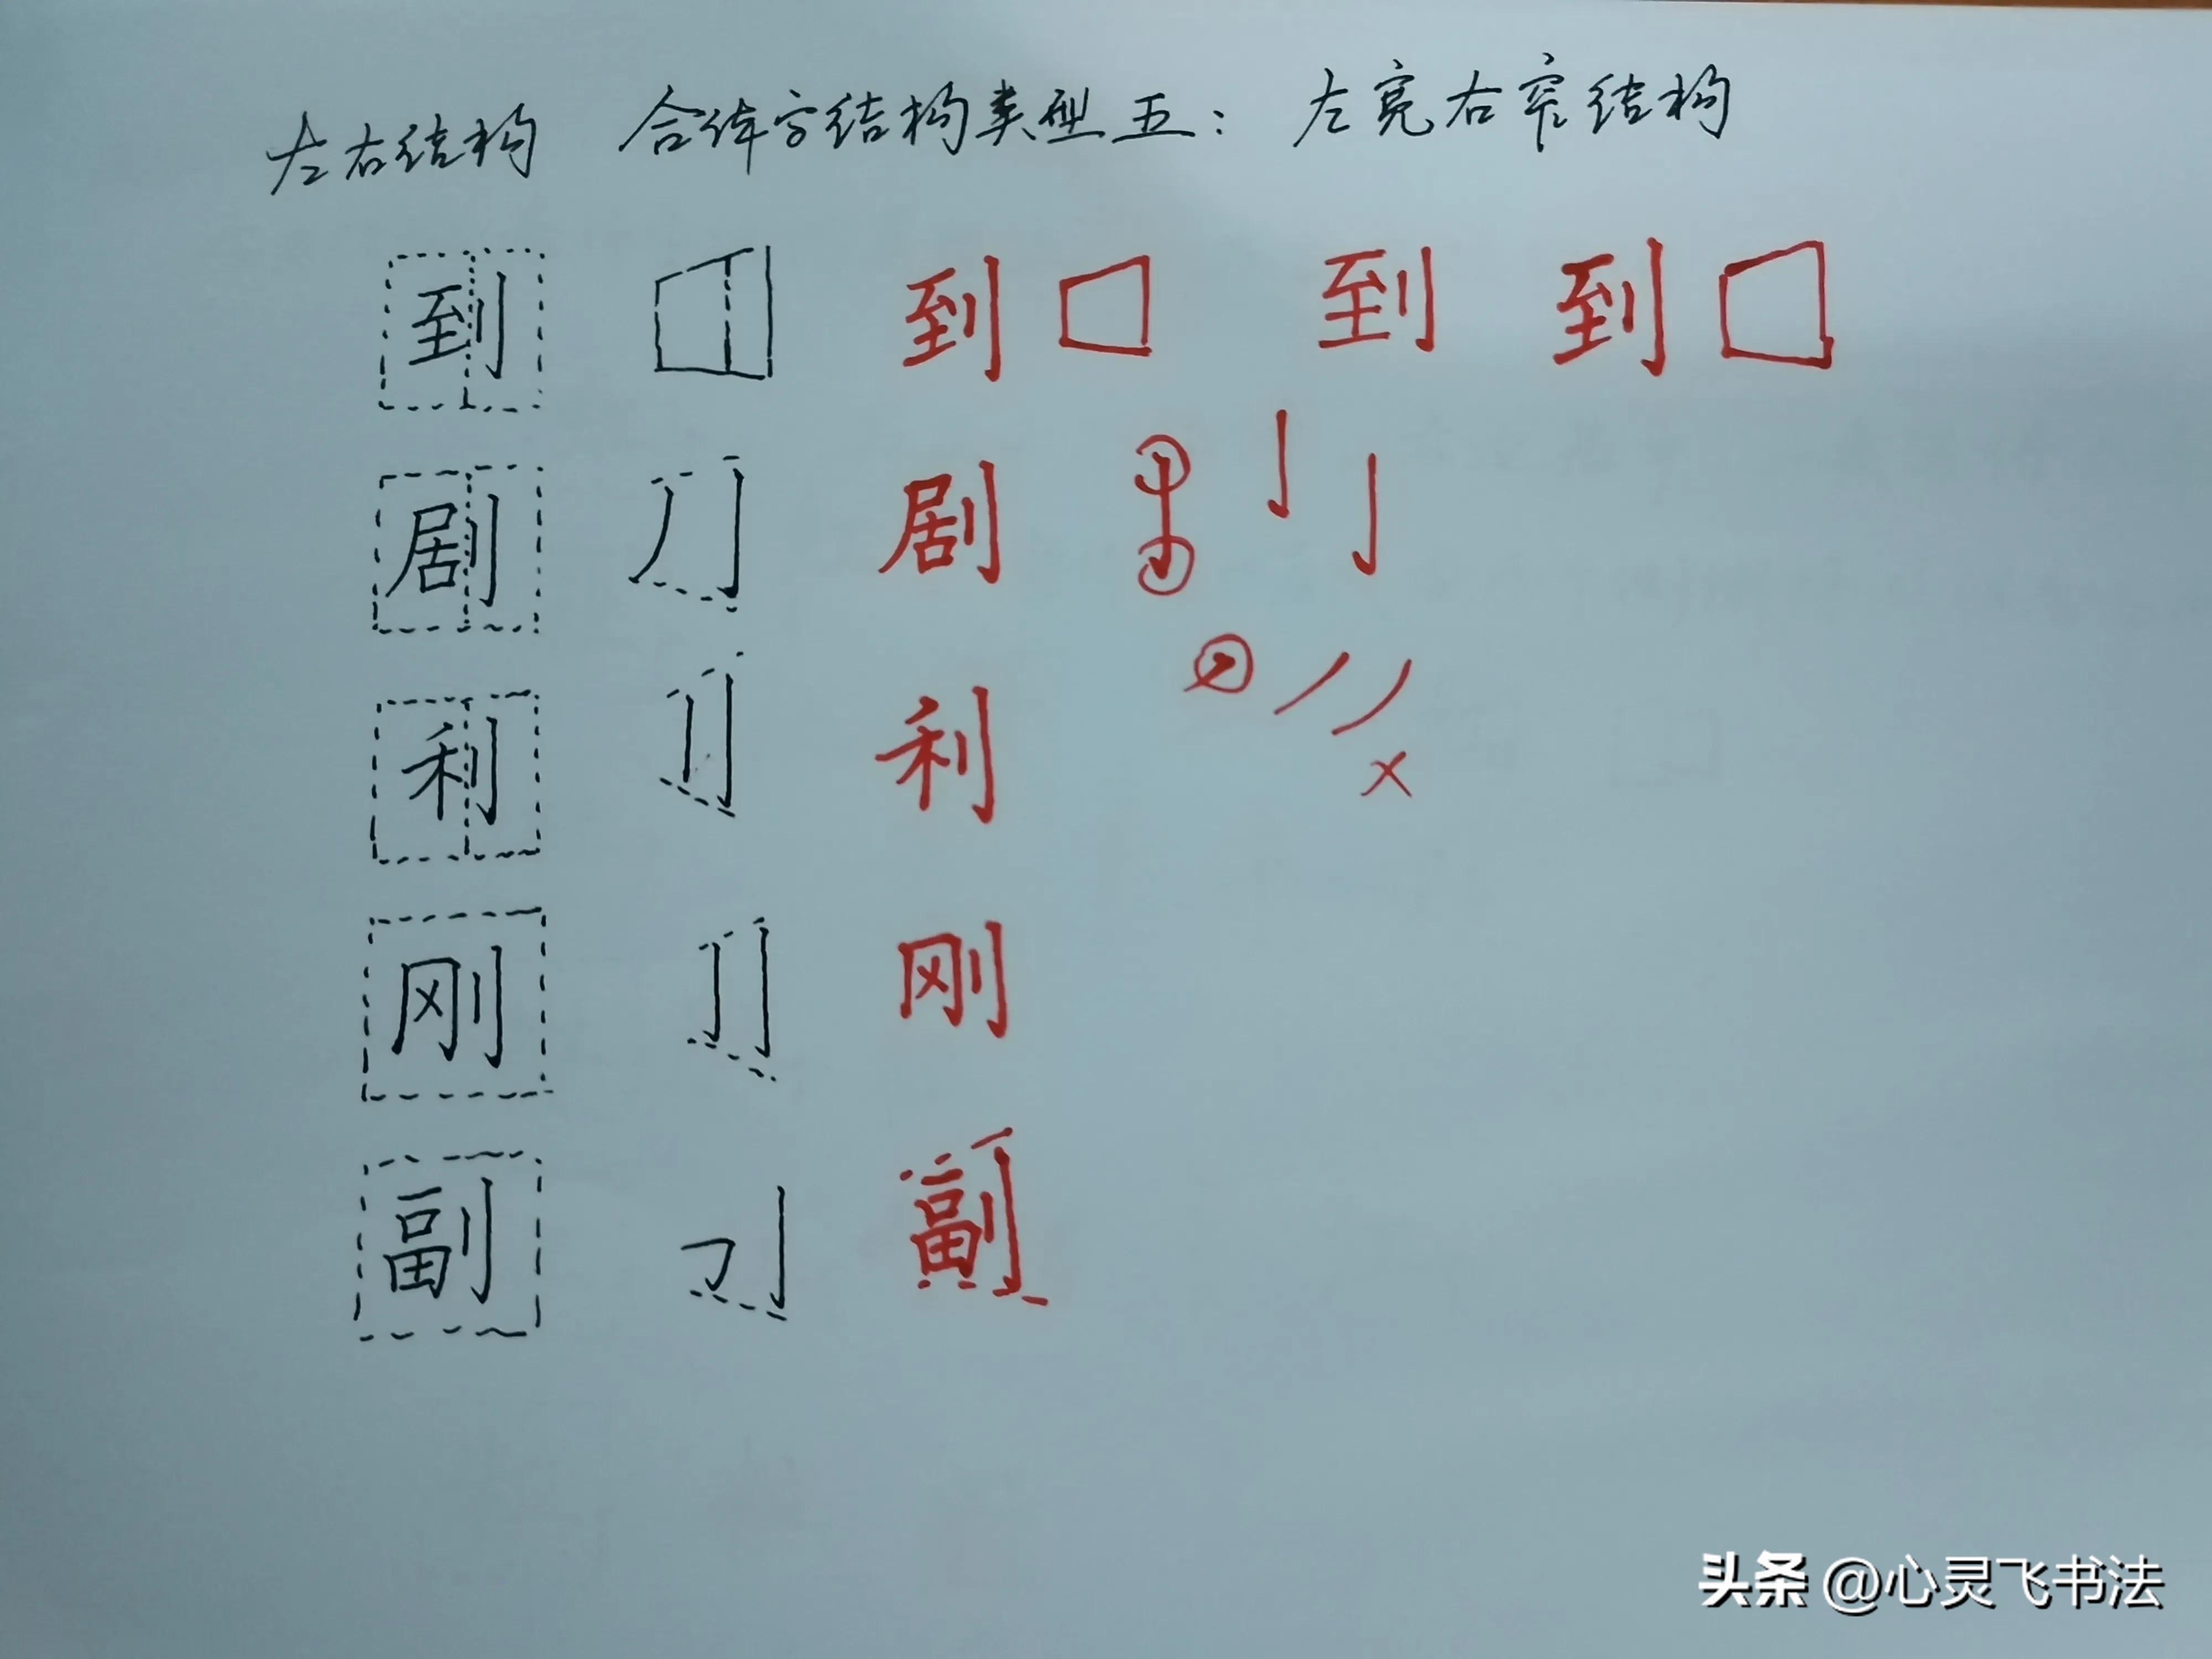 左右结构 合体字结构类型五：左宽右窄结构
到 到 到 到
剧 剧
利 利
刚 刚
副 副
头条 @心灵飞书法